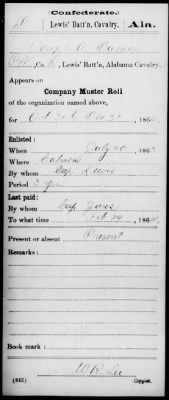 Confederate.
D Lewis' Batt'n, Cavalry. Ala.
Joseph
Co. , Lewis' Batt'n, Alabama Cavalry.
Appears on
Company Muster Roll
of the organization named above,
for Oct 31 to Dec 31, 186
Enlisted:
When July 20, 186
Where
By whom Cap Lewis
Period 3 yrs
Last paid:
By whom Cap
To what time 186
Present or absent Present
Remarks:
Book mark:
W. R. Lee
(642) Copyist.